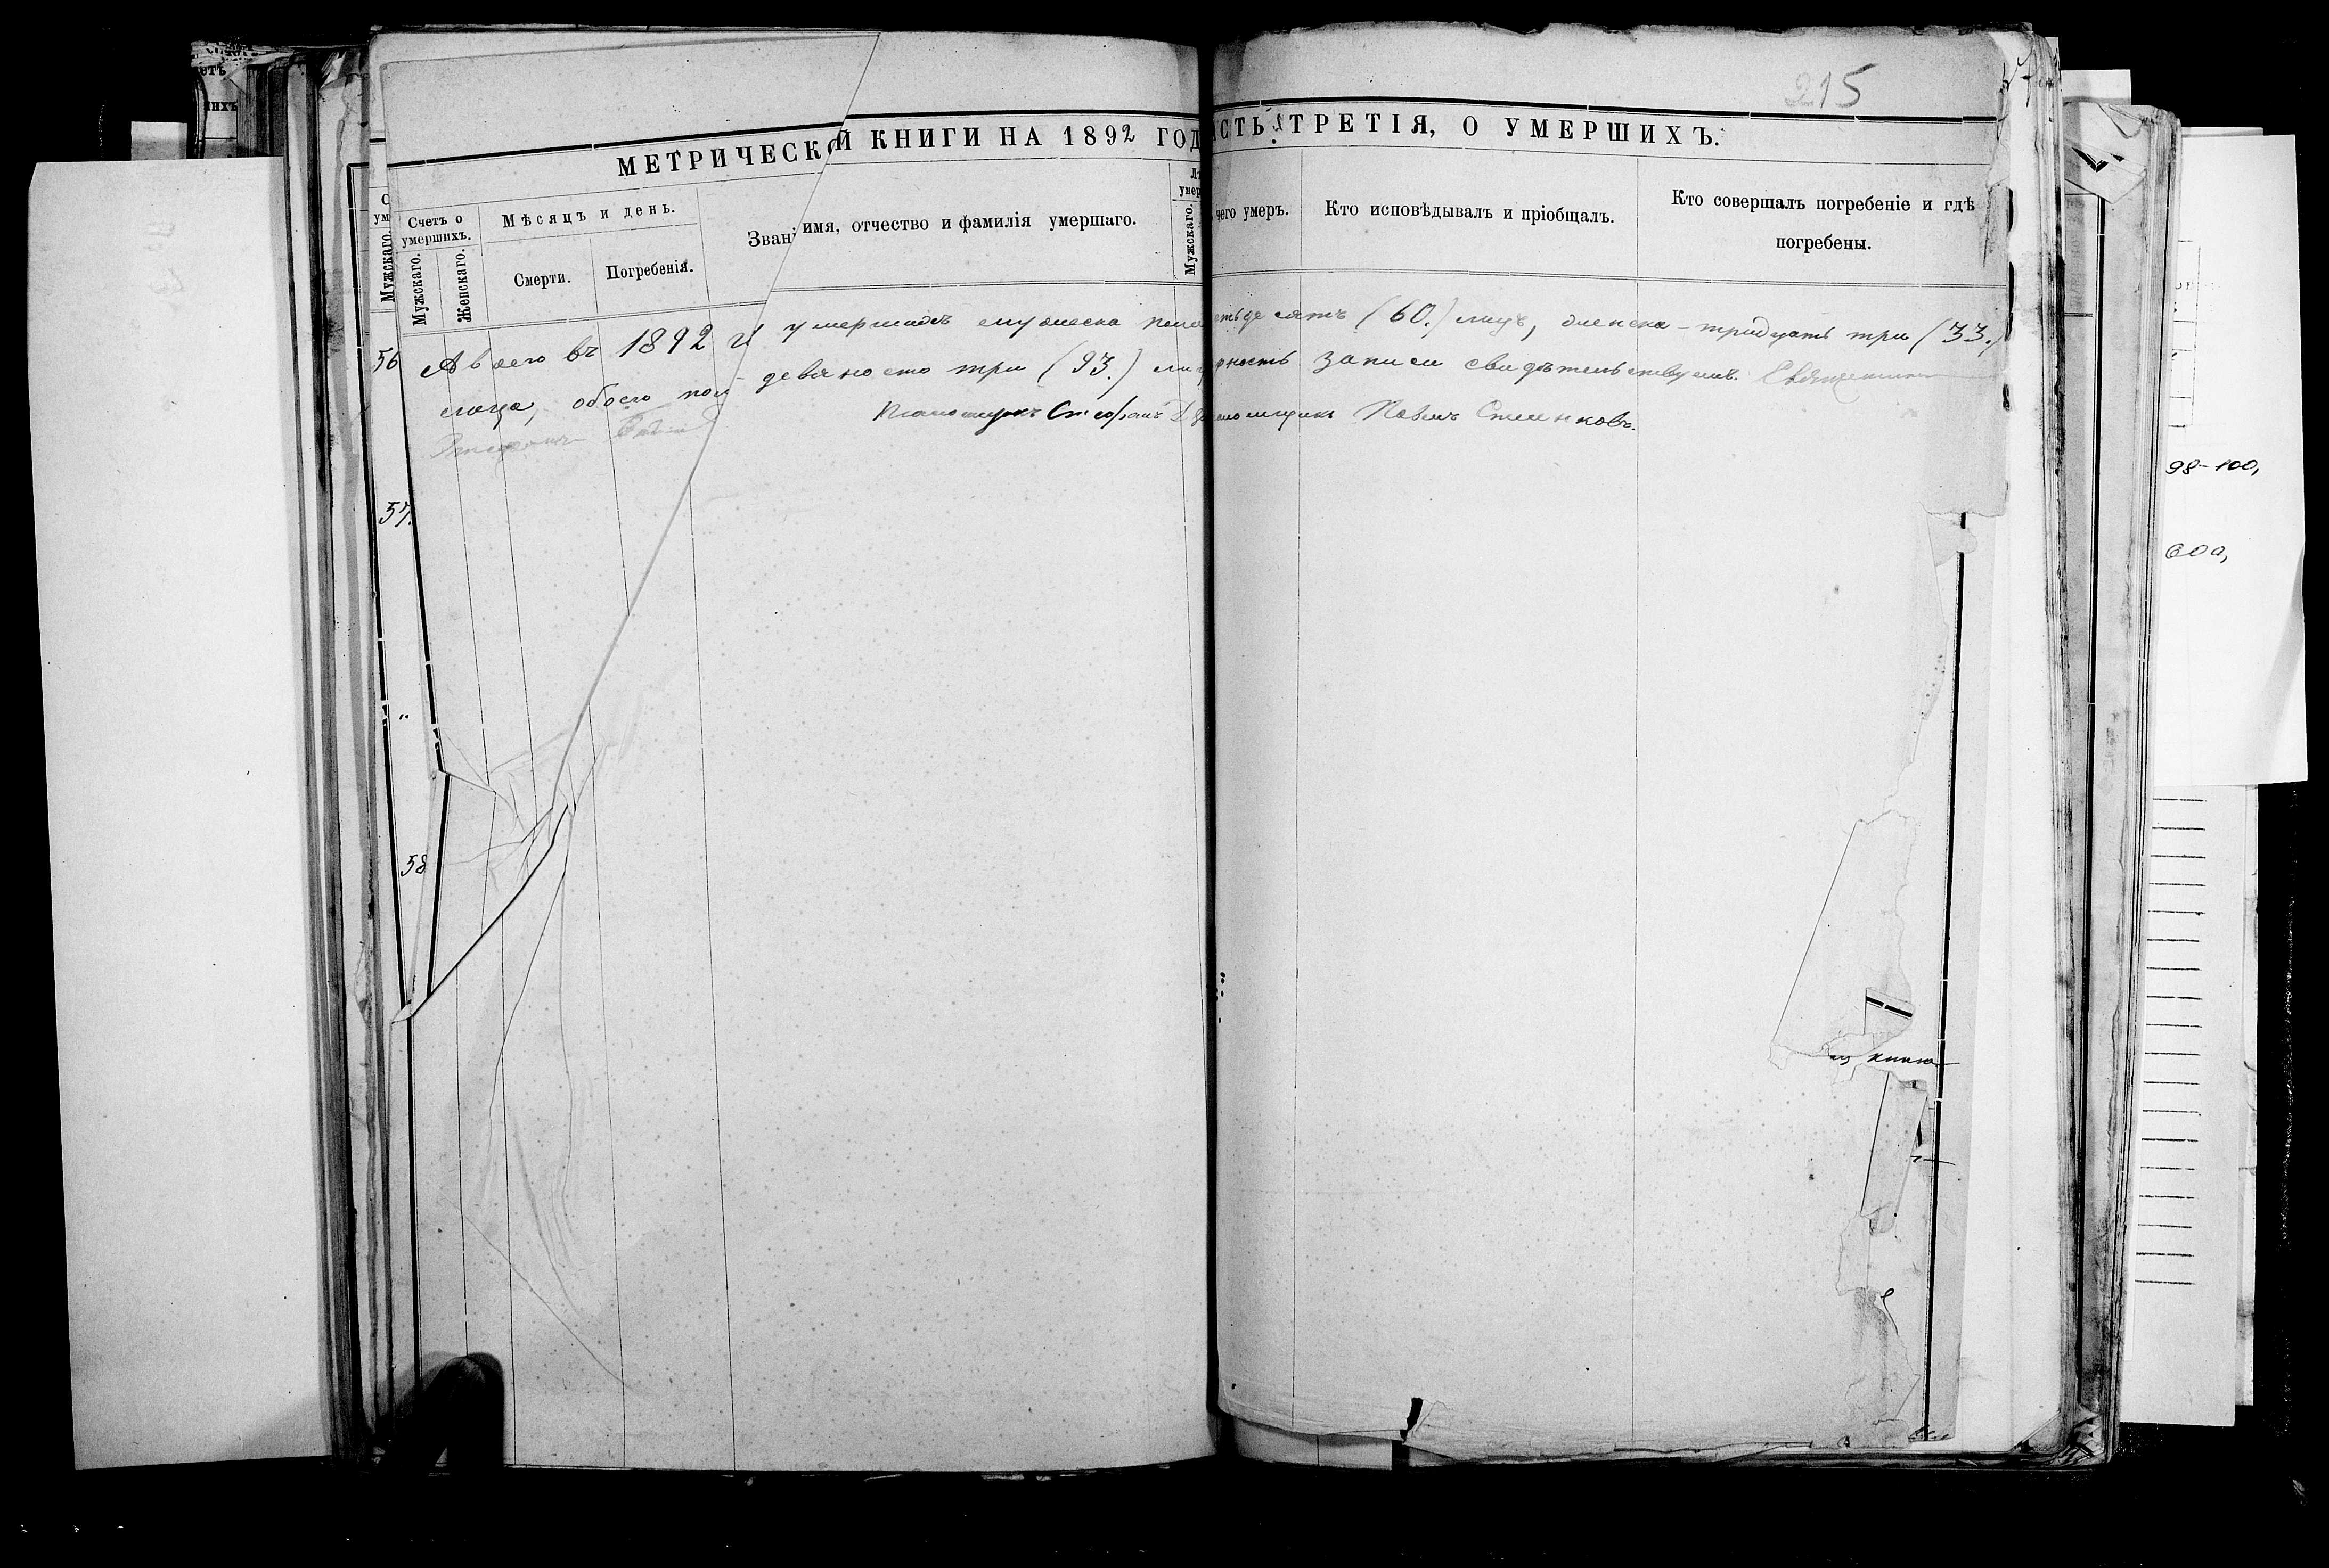 215
МЕТРИЧЕСКОЙ КНИГИ НА 1892 ГОД
СТЬ ТРЕТІЯ, О УМЕРШИХЪ.
Счетъ о умершихъ.
Мужскаго.
Женскаго.
Мѣсяцъ и день.
Смерти.
Погребенія.
Звані имя, отчество и фамилія умершаго.
Мужскаго.
чего умеръ.
Кто исповѣдывалъ и пріобщалъ.
Кто совершалъ погребеніе и гдѣ
погребены.
А всего въ 1892 г умершихъ мужеска пола
стьдесятъ (60.) лицъ, женска - тридцать три (33.)
лица, обоего пол девяносто три (93.) лиц
рность записи свидѣтельствуемъ. Священникъ
Псаломщикъ Стефанъ
Псаломщикъ Павелъ
56
57.
58
98-100,